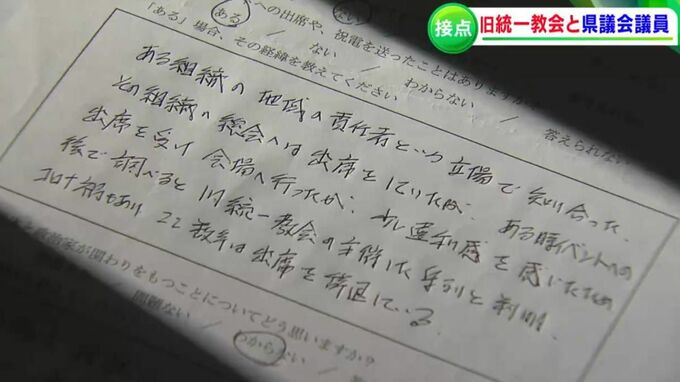 接点 旧統一教会と県議会議員
ある ない
への出席や、祝電を送ったことはありますか
ある ／ ない ／ わからない ／ 答えられない
「ある」場合、その経緯を教えてください
ある組織の地域の責任者という立場で知り合った。
その組織の総会へは出席をしていたが、ある時イベントへの
出席を受け会場へ行ったが、少し違和感を感じたため
後で調べると旧統一教会の主催した 事が と判明。
コロナ禍もあり ここ数年は出席を辞退している。
家が関わりをもつことについてどう思いますか？
問題ない ／ わからない ／